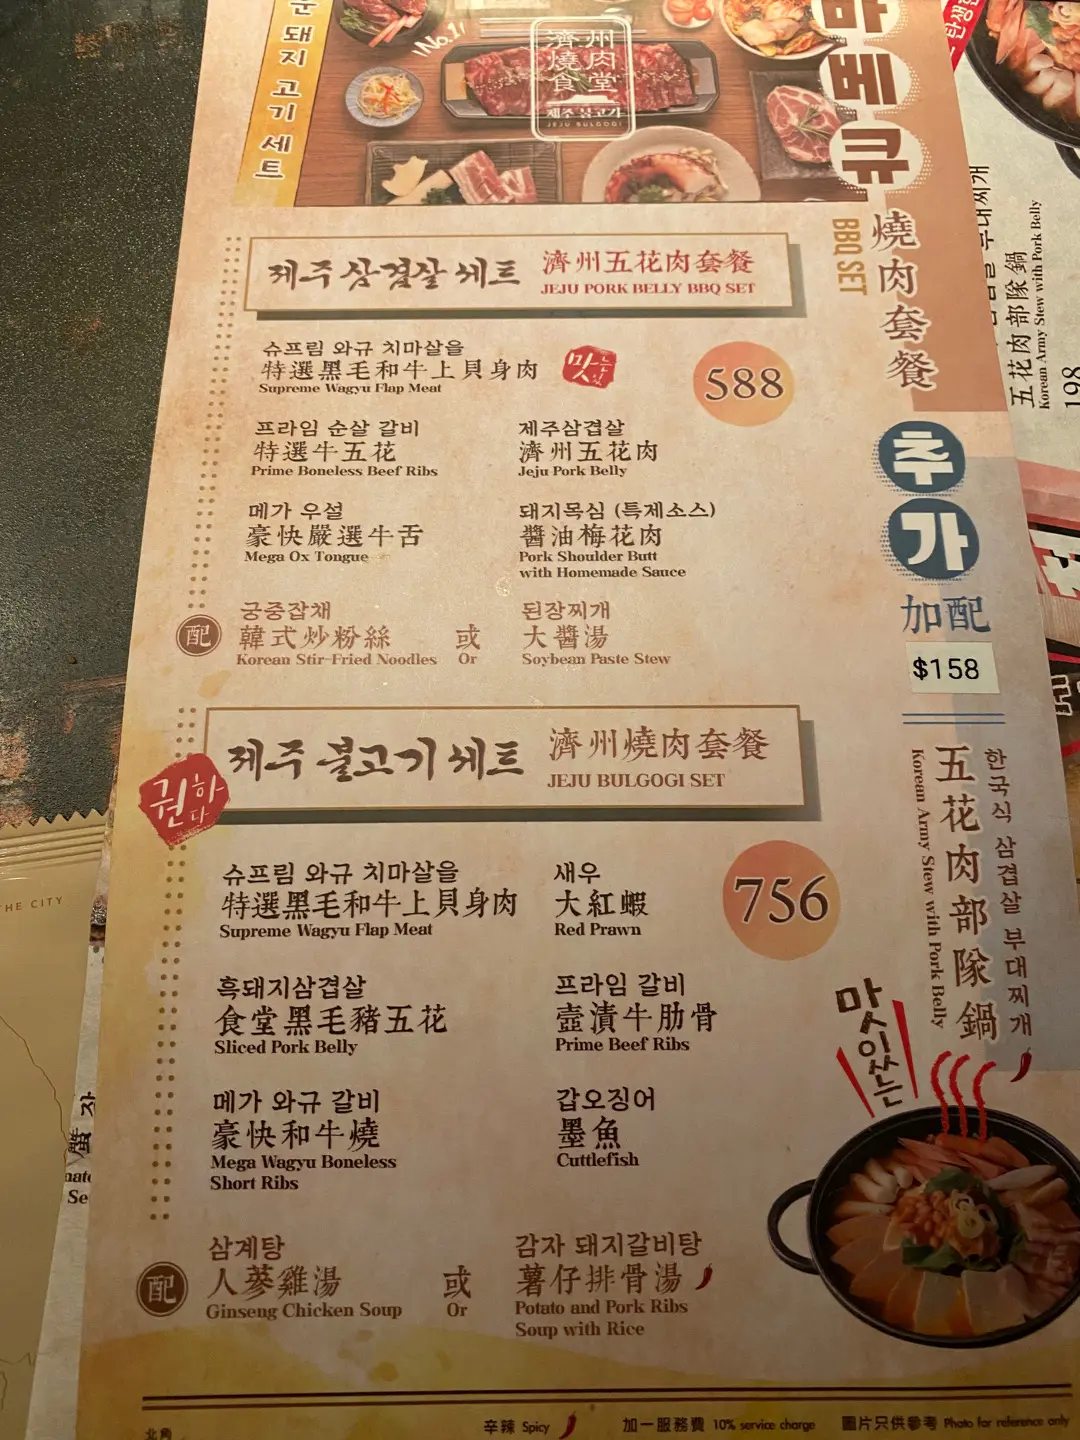 돼지고기세트
No.1!
濟州
燒肉
食堂
제주 불고기
JEJU BULGOGI
BBQ SET
燒肉套餐
제주 삼겹살 세트 濟州五花肉套餐
JEJU PORK BELLY BBQ SET
슈프림 와규 치마살을
特選黑毛和牛上貝身肉
Supreme Wagyu Flap Meat
맛있는
588
프라임 순살 갈비
特選牛五花
Prime Boneless Beef Ribs
제주삼겹살
濟州五花肉
Jeju Pork Belly
메가 우설
豪快嚴選牛舌
Mega Ox Tongue
돼지목심 (특제소스)
醬油梅花肉
Pork Shoulder Butt
with Homemade Sauce
配
궁중잡채
韓式炒粉絲
Korean Stir-Fried Noodles
或
Or
된장찌개
大醬湯
Soybean Paste Stew
제주 불고기 세트 濟州燒肉套餐
JEJU BULGOGI SET
권하다
슈프림 와규 치마살을
特選黑毛和牛上貝身肉
Supreme Wagyu Flap Meat
새우
大紅蝦
Red Prawn
756
흑돼지삼겹살
食堂黑毛豬五花
Sliced Pork Belly
프라임 갈비
壺漬牛肋骨
Prime Beef Ribs
메가 와규 갈비
豪快和牛燒
Mega Wagyu Boneless
Short Ribs
갑오징어
墨魚
Cuttlefish
配
삼계탕
人蔘雞湯
Ginseng Chicken Soup
或
Or
감자 돼지갈비탕
薯仔排骨湯
Potato and Pork Ribs
Soup with Rice
추가
加配
$158
한국식 삼겹살 부대찌개
五花肉部隊鍋
Korean Army Stew with Pork Belly
맛있는
부대찌개
五花肉部隊鍋
Korean Army Stew with Pork Belly
198
THE CITY
北角
辛辣 Spicy
加一服務費 10% service charge
圖片只供參考 Photo for reference only